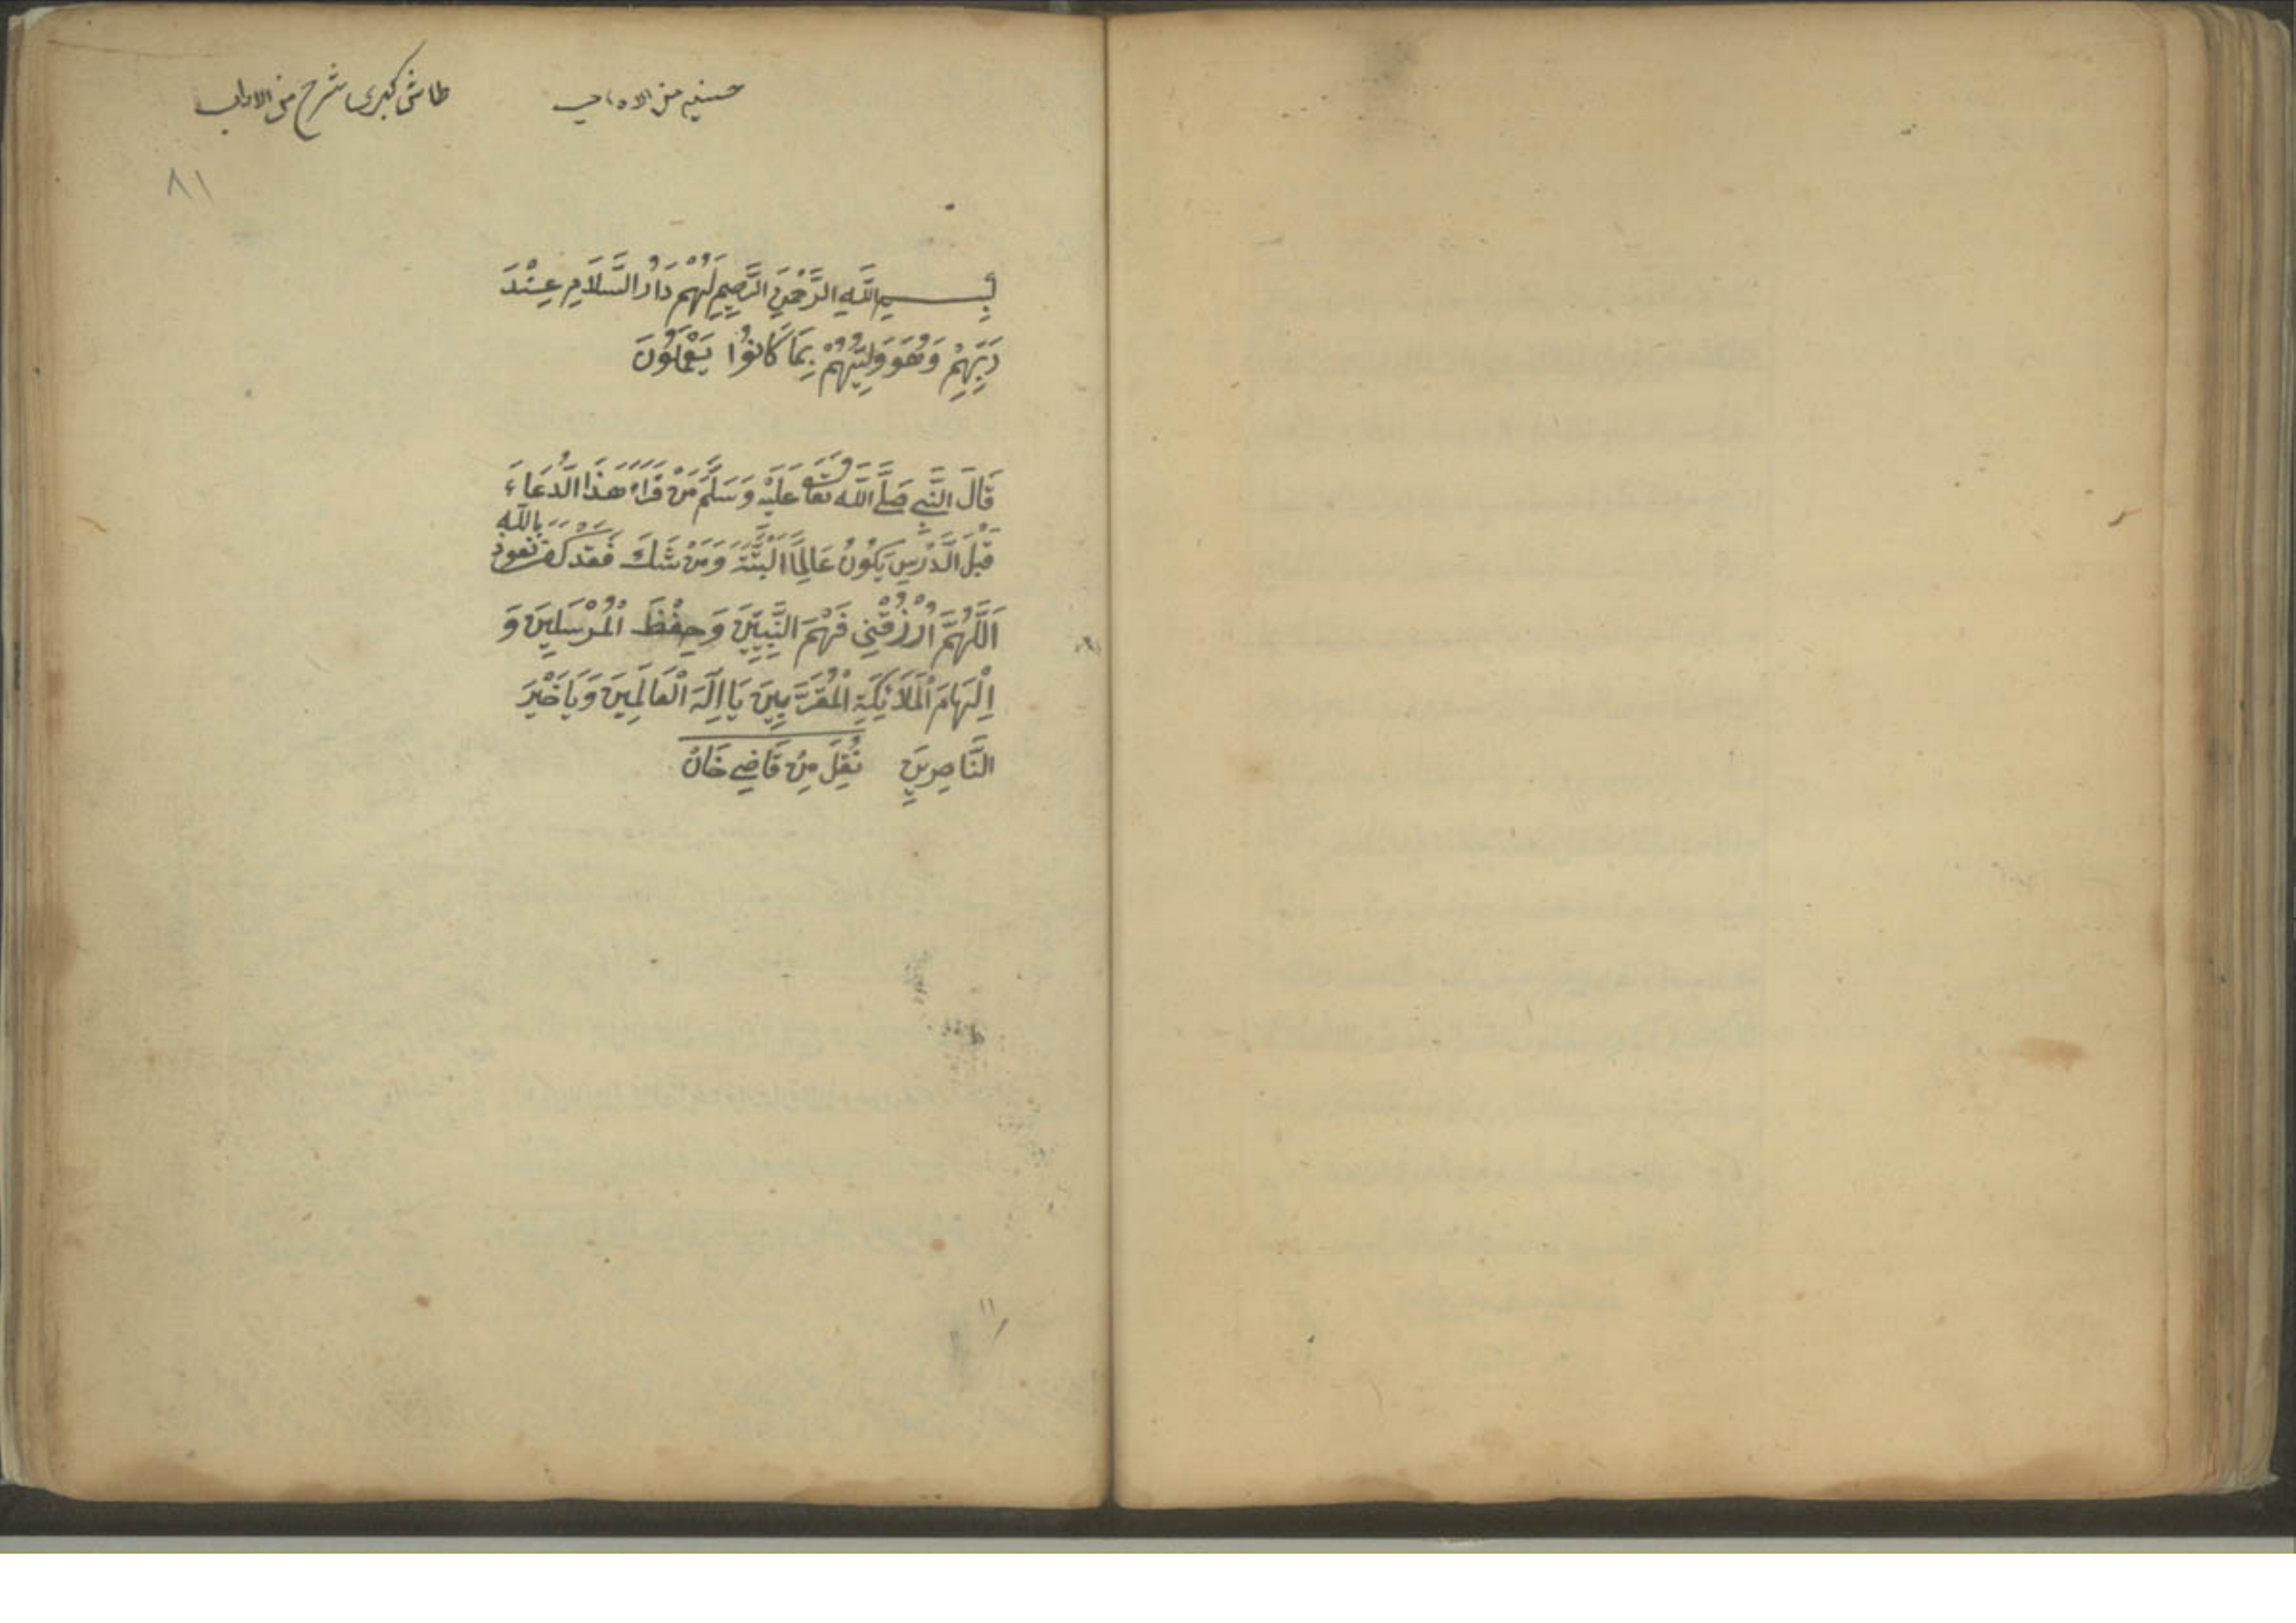 حسنيه من الاداب
طاش كبرى شرح من الاداب
٨١
بِسْمِ اللَّهِ الرَّحْمٰنِ الرَّحِيمِ لَهُمْ دَارُ السَّلَامِ عِنْدَ
رَبِّهِمْ وَهُوَ وَلِيُّهُمْ بِمَا كَانُوا يَعْمَلُونَ
قَالَ النَّبِي صَلَّى اللَّه تَعَا عَلَيْهِ وَسَلَّمَ مَنْ قَرَاءَ هَذَا الدُّعَاءَ
قَبْلَ الدَّرْسِ يَكُونُ عَالِمًا اَلْبَتَّةَ وَمَنْ شَكَ فَقَدْ كَفَرَ نعوذ بالله
اَللَّهُمَّ ارْزُقْنِي فَهْمَ النَّبِيِّينَ وَحِفْظَ الْمُرْسَلِينَ وَ
اِلْهَامَ الْمَلَائِكَةِ الْمُقَرَّبِينَ يَا اِلَهَ الْعَالَمِينَ وَيَا خَيْرَ
النَّاصِرِينَ نُقِلَ مِنْ قَاضِي خَانْ
١١